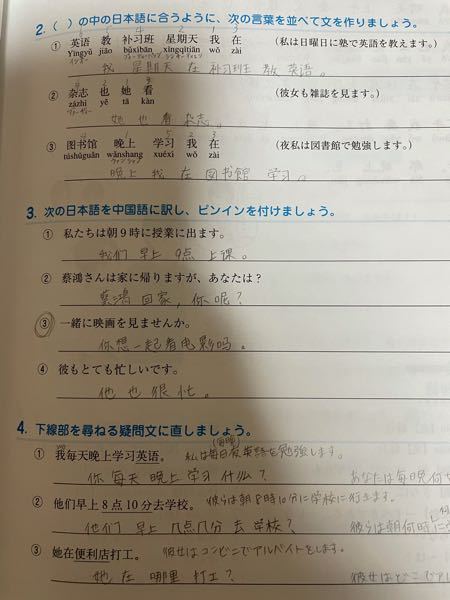 2. (　)の中の日本語に合うように、次の言葉を並べて文を作りましょう。
① 英语 教 补习班 星期天 我 在 (私は日曜日に塾で英語を教えます。)
Yīngyǔ jiāo bǔxíbān xīngqītiān wǒ zài
我 星期天 在 补习班 教 英语。
② 杂志 也 她 看 (彼女も雑誌を見ます。)
zázhì yě tā kàn
她 也 看 杂志。
③ 图书馆 晚上 学习 我 在 (夜私は図書館で勉強します。)
túshūguǎn wǎnshang xuéxí wǒ zài
晚上 我 在 図书馆 学习。
3. 次の日本語を中国語に訳し、ピンインを付けましょう。
① 私たちは朝9時に授業に出ます。
我们 早上 9点 上课。
② 蔡鴻さんは家に帰りますが、あなたは？
蔡鴻 回家，你呢？
③ 一緒に映画を見ませんか。
你想一起看电影吗。
④ 彼もとても忙しいです。
他 也 很 忙。
4. 下線部を尋ねる疑問文に直しましょう。
① 我每天晚上学习英语。 私は毎日夜英語を勉強します。
你 每天 晚上 学习 什么？ あなたは毎晩何
② 他们早上8点10分去学校。 彼らは朝8時10分に学校に行きます。
他们 早上 几点几分 去 学校？ 彼らは朝何時
③ 她在便利店打工。 彼女はコンビニでアルバイトをします。
她 在 哪里 打工？ 彼女はどこでア